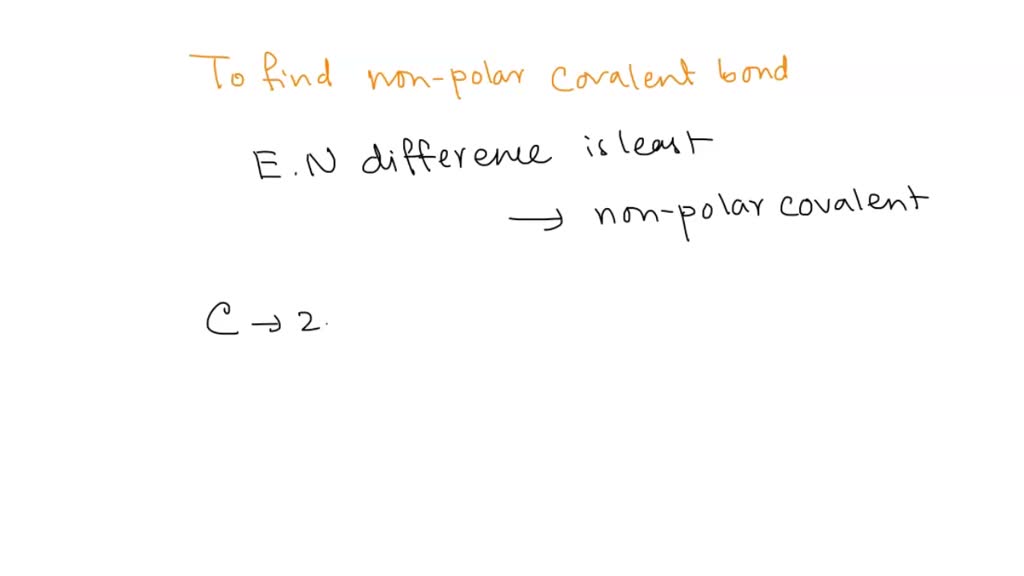 To find non-polar covalent bond
E.N difference is least
→ non-polar covalent
C → 2.